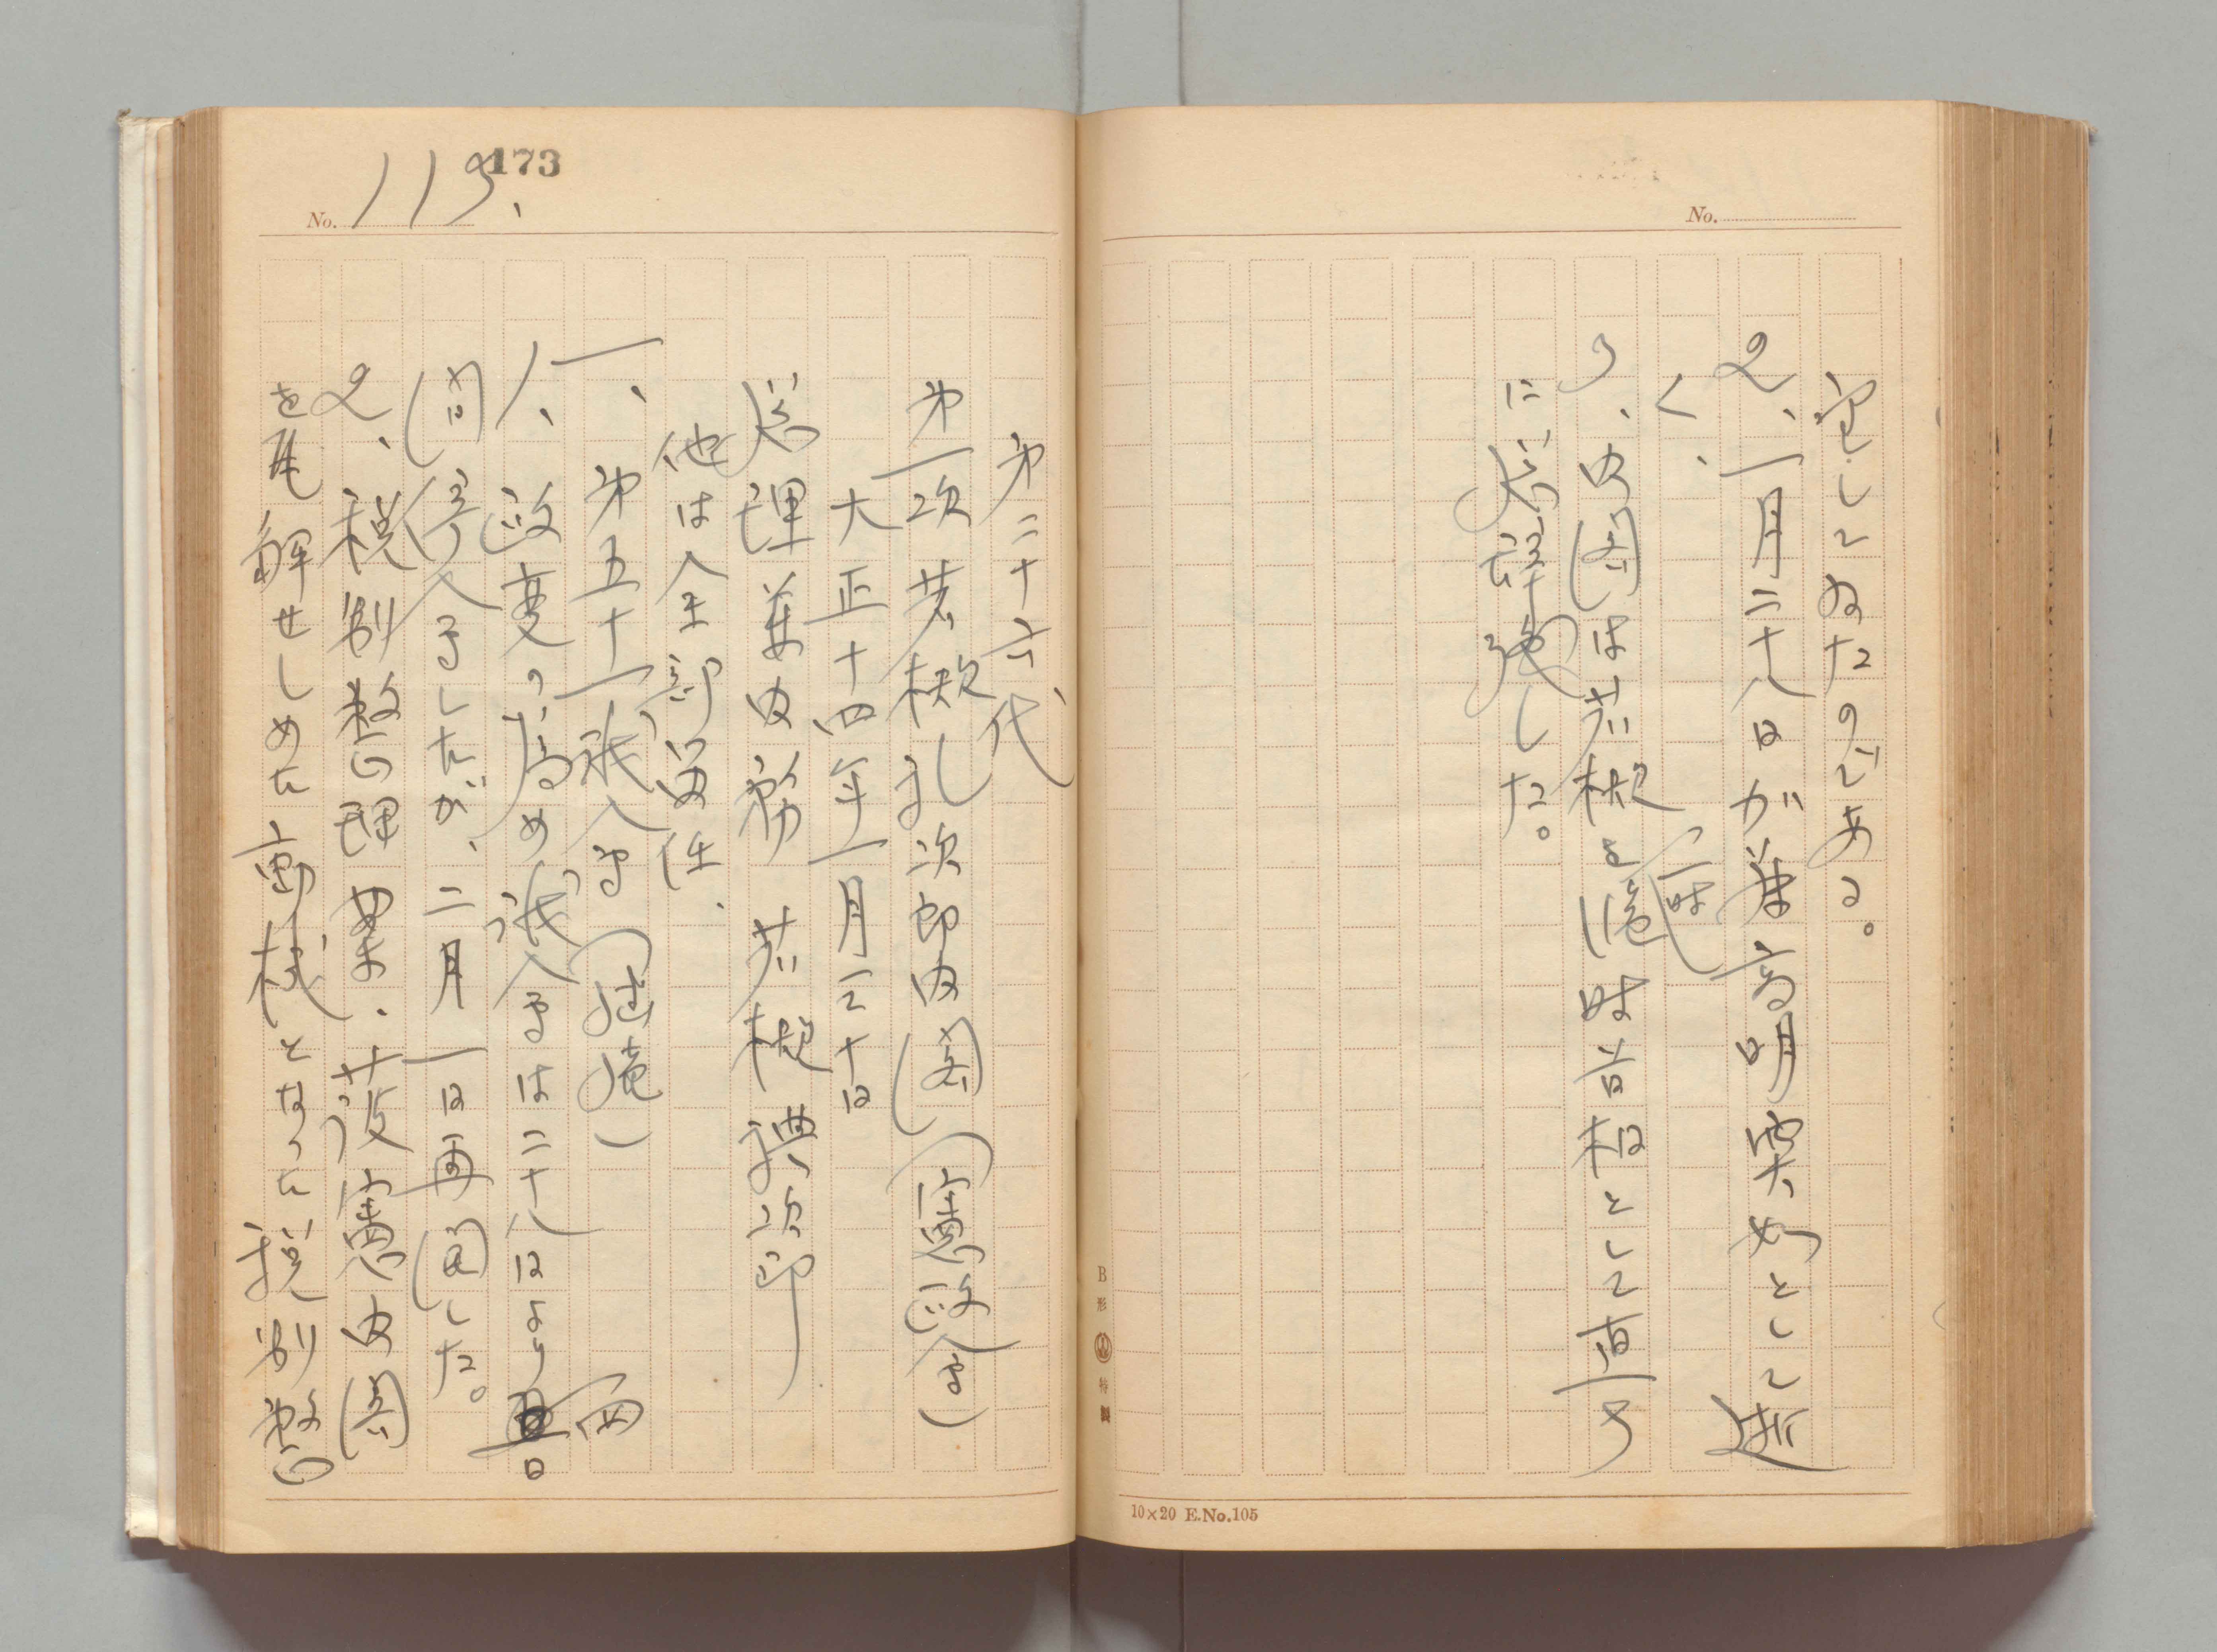 No.
定してゐたのである。
2、一月二十八日加藤高明突如として逝
く、(一時)
3、内閣は若槻を臨時首相として直ち
に総辞職した。
B形 特製
10×20 E.No.105
173
No. 113、
第二十六代
第一次若槻礼次郎内閣(憲政会)
大正十四年一月三十日
総理兼内務 若槻礼次郎
他は全部留任、
一、第五十一議会(継続)
1、政変の為め議会は二十八日より四日
間停会したが、二月一日再開した。
2、税制整理案、護憲内閣
を瓦解せしめた動機となった税制整